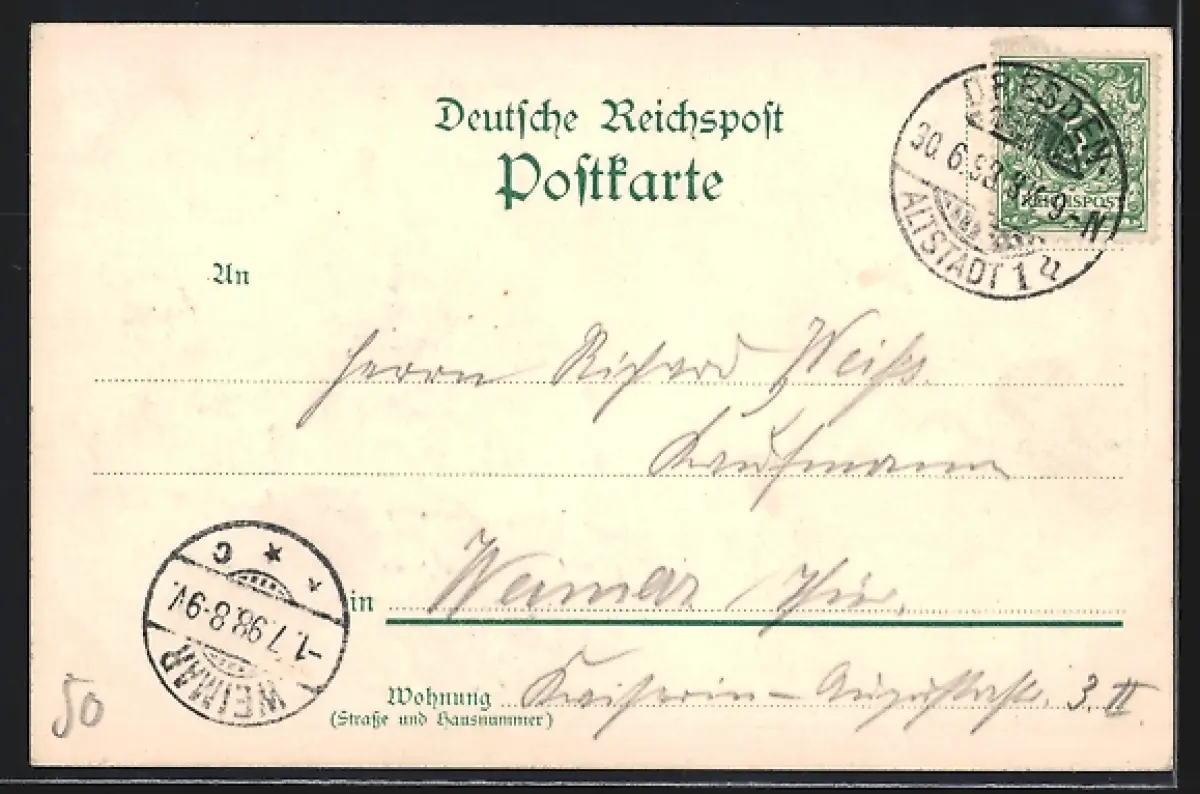 Deutsche Reichspost
Postkarte
DRESDEN-
30.6.98.8-9-N
ALTSTADT 1 u
REICHSPOST
An
Herrn Richard Weiß
Kaufmann
in Weimar Thür.
Wohnung Kaiserin-Augustastr. 3. II
(Straße und Hausnummer)
C
-1.7.98.8-9V.
WEIMAR
50